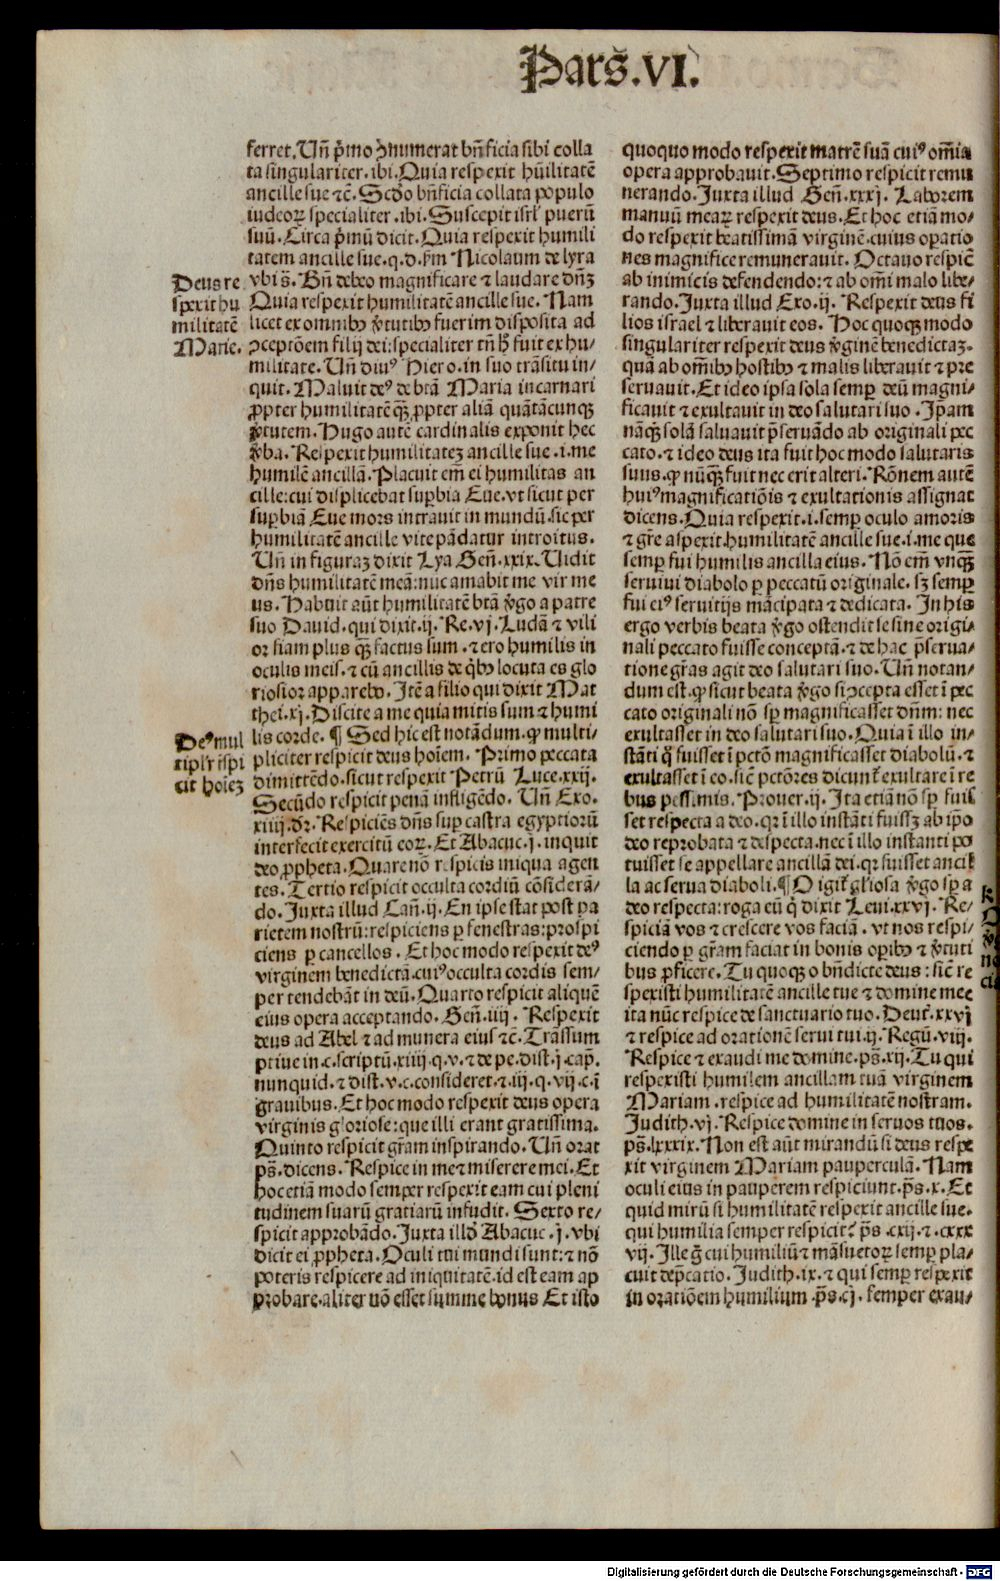 Pars̄.VI.
ferret. Un̄ p̄mo ꝯnumerat bn̄ficia sibi colla
ta singulariter. ibi. Quia respexit hūilitatē
ancille sue ⁊c̄. Scd̄o bn̄ficia collata populo
iudeoꝝ specialiter. ibi. Suscepit isrl̄ puerū
suū. Circa p̄mū dicit. Quia respexit humili
tatem ancille sue. q. d. s̄m Nicolaum de lyra
vbi s̄. Bn̄ debeo magnificare ⁊ laudare dn̄ꝫ
Quia respexit humilitatē ancille sue. Nam
licet ex omnibꝰ v̓tutibꝰ fuerim disposita ad
ꝯceptōem filij dei: specialiter tn̄ h̄ fuit ex hu-
militate. Un̄ diuꝰ Hiero. in suo trāsitu in-
quit. Maluit deꝰ de btā Maria incarnari
ꝓpter humilitatē qꝫ̄ ꝓpter aliā quātācunqꝫ
v̓tutem. Hugo autē cardinalis exponit hec
v̓ba. Respexit humilitateꝫ ancille sue. i. me
humilē ancillā. Placuit em̄ ei humilitas an
cille: cui displicebat suꝑbia Eue. vt sicut per
suꝑbiā Eue mors intrauit in mundū. sic per
humilitatē ancille vite pādatur introitus.
Un̄ in figuraꝫ dixit Lya Gen̄. xxix. Uidit
dn̄s humilitatē meā: nūc amabit me vir me
us. Habuit aūt humilitatē btā v̓go a patre
suo Dauid. qui dixit. ij. Re. vj. Ludā ⁊ vili
or fiam plus qꝫ̄ factus sum. ⁊ ero humilis in
oculis meis. ⁊ cū ancillis de qͥbꝰ locuta es glo
riosior apparebo. Itē a filio qui dixit Mat
thei. xj. Discite a me quia mitis sum ⁊ humi
lis corde. ¶ Sed hic est notādum. ꝙ multi-
pliciter respicit deus hoīem. Primo peccata
dimittēdo. sicut respexit Petrū Luce. xxij.
Secūdo respicit penā infligēdo. Un̄ Exo.
xiiij. dr̄. Respiciēs dn̄s suꝑ castra egyptiorū
interfecit exercitū eoꝝ. Et Abacuc. j. inquit
deo ꝓpheta. Quare nō respicis iniqua agen
tes. Tertio respicit occulta cordiū cōsiderā-
do. Juxta illud Cañ. ij. En ipse stat post pa
rietem nostrū: respiciens ꝑ fenestras: prospi
ciens ꝑ cancellos. Et hoc modo respexit deꝰ
virginem benedictā. cuiꝰ occulta cordis sem-
per tendebāt in deū. Quarto respicit aliquē
eius opera acceptando. Gen̄. iiij. Respexit
deus ad Abel ⁊ ad munera eius ⁊c̄. Trāssum
ptiue in. c. scriptū. xiiij. q. v. ⁊ de pe. dist. j. cap̄.
nunquid. ⁊ dist. v. c. consideret. ⁊ iij. q. vij. c. ī
grauibus. Et hoc modo respexit deus opera
virginis gloriose: que illi erant gratissima.
Quinto respicit gr̄am inspirando. Un̄ orat
ps̄. dicens. Respice in me ⁊ miserere mei. Et
hoc etiā modo semper respexit eam cui pleni
tudinem suarū gratiarū infudit. Sexto re-
spicit approbādo. Juxta illd̓ Abacuc. j. vbi
dicit ei ꝓpheta. Oculi tui mundi sunt: ⁊ nō
poteris respicere ad iniquitatē. id est eam ap
probare. aliter uō esset summe bonus Et isto
Deus re
spexit hu
militatē
Marie.
Deꝰ mul
tiplr̄ r̄spi
cit hoīeꝫ
quoquo modo respexit matrē suā cuiꝰ om̄ia
opera approbauit. Septimo respicit remu
nerando. Juxta illud Gen̄. xxxj. Laborem
manuū meaꝝ respexit deus. Et hoc etiā mo-
do respexit beatissimā virginē. cuius oꝑatio
nes magnifice remunerauit. Octauo respic̄
ab inimicis defendendo: ⁊ ab om̄i malo libe-
rando. Juxta illud Exo. ij. Respexit deus fi
lios israel ⁊ liberauit eos. Hoc quoqꝫ modo
singulariter respexit deus v̓ginē benedictaꝫ.
quā ab om̄ibꝰ hostibꝰ ⁊ malis liberauit ⁊ pre
seruauit. Et ideo ipsa sola semꝑ deū magni-
ficauit ⁊ exultauit in deo salutari suo. Ipam
nāqꝫ solā saluauit p̄seruādo ab originali pec
cato. ⁊ ideo deus ita fuit hoc modo salutaris
suus. ꝙ nūqꝫ̄ fuit nec erit alteri. Rōnem autē
huiꝰ magnificatiōis ⁊ exultationis assignat
dicens. Quia respexit. i. semꝑ oculo amoris
⁊ gr̄e aspexit humilitatē ancille sue. i. me que
semꝑ fui humilis ancilla eius. Nō em̄ vnqꝫ̄
seruiui diabolo ꝑ peccatū originale. sꝫ semꝑ
fui eiꝰ seruitijs mācipata ⁊ dedicata. In his
ergo verbis beata v̓go ostendit se sine origi-
nali peccato fuisse conceptā. ⁊ de hac p̄serua-
tione gr̄as agit deo salutari suo. Un̄ notan-
dum est. ꝙ sicut beata v̓go si ꝯcepta esset ī pec
cato originali nō sp̄ magnificasset dn̄m: nec
exultasset in deo salutari suo. Quia ī illo in-
stāti qͦ fuisset ī pctō magnificasset diabolū. ⁊
exultasset ī eo. sic̄ pctōres dicunt̄ exultare ī re
bus pessimis. Prouer. ij. Ita etiā nō sp̄ fuis
set respecta a deo. qꝛ ī illo instāti fuissꝫ ab ip̄o
deo reprobata ⁊ despecta. nec ī illo instanti po
tuisset se appellare ancillā dei. qꝛ fuisset ancil
la ac serua diaboli. ¶ O igit̄ gl̓iosa v̓go sp̄ a
deo respecta: roga eū qͥ dixit Leui. xxvj. Re-
spiciā vos ⁊ crescere vos faciā. vt nos respi-
ciendo ꝑ gr̄am faciat in bonis oꝑibꝰ ⁊ v̓tuti
bus ꝑficere. Tu quoqꝫ o bn̄dicte deus: sic̄ re
spexisti humilitatē ancille tue ⁊ domine mee
ita nūc respice de sanctuario tuo. Deut̄. xxvj
⁊ respice ad orationē serui tui. ij. Regū. viij.
Respice ⁊ exaudi me domine. ps̄. xij. Tu qui
respexisti humilem ancillam tuā virginem
Mariam. respice ad humilitatē nostram.
Judith. vj. Respice domine in seruos tuos.
ps̄. lxxxix. Non est aūt mirandū si deus respe
xit virginem Mariam pauperculā. Nam
oculi eius in pauperem respiciunt. ps̄. x. Et
quid mirū si humilitatē respexit ancille sue.
qui humilia semper respicit? ps̄. cxij. ⁊. cxxx
vij. Ille g̊ cui humiliū ⁊ māsuetoꝝ semꝑ pla-
cuit dep̄catio. Judith. ix. ⁊ qui semꝑ respexit
in oratiōem humilium. ps̄. cj. semper exau-
Digitalisierung gefördert durch die Deutsche Forschungsgemeinschaft - DFG